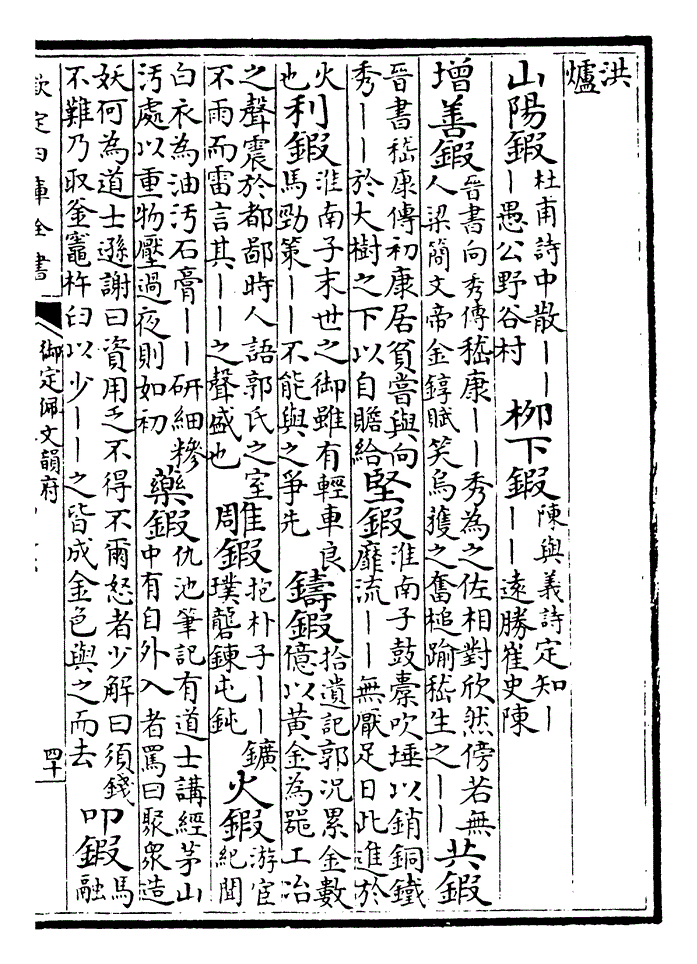 洪爐
山陽鍛 杜甫詩中散丨丨
丨愚公野谷村
栁下鍛 陳與義詩定知丨
丨丨遠勝崔史陳
增善鍛 晉書向秀傳嵇康丨丨秀為之佐相對欣然傍若無
人梁簡文帝金錞賦笑烏獲之奮槌踰嵇生之丨丨
共鍛
晉書嵇康傳初康居貧嘗與向
秀丨丨於大樹之下以自贍給
堅鍛 淮南子鼓橐吹埵以銷銅鐵
靡流丨丨無厭足日此進於
火
也
利鍛 淮南子末世之御雖有輕車良
馬勁策丨丨不能與之爭先
鑄鍛 拾遺記郭況累金數
億以黃金為器工冶
之聲震於都鄙時人語郭氏之室
不雨而雷言其丨丨之聲盛也
雕鍛 抱朴子丨丨鑛
璞礲鍊屯鈍
火鍛 游宦
紀聞
白衣為油汚石膏丨丨研細糝
汚處以重物壓過夜則如初
藥鍛 仇池筆記有道士講經茅山
中有自外入者罵曰聚衆造
妖何為道士遜謝曰資用乏不得不爾怒者少解曰須錢
不難乃取釜竈杵臼以少丨丨之皆成金色與之而去
叩鍛 馬
融
欽定四庫全書
御定佩文韻府
四十